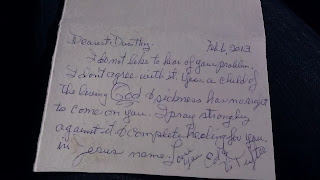 Dearest Dorothy, Feb 6, 2013
I do not like to hear of your problem.
I don't agree with it. Your a child of
the living God & sickness has no right
to come on you. I pray strongly
against it & complete healing for you
in Jesus name. Love
you